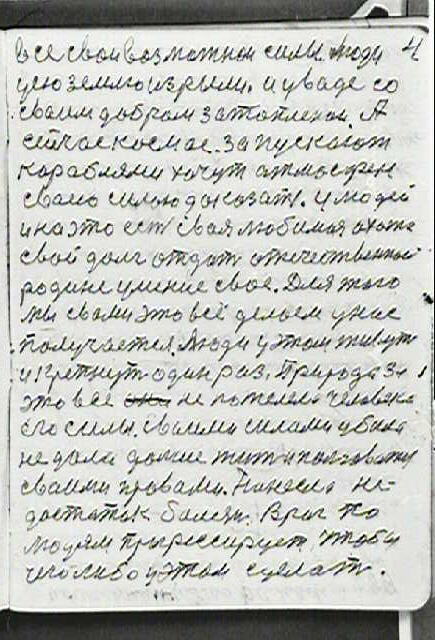 все свои возможнои силы. Люди 4
цею землю изрыли. и уваде со
своим добром затопленои. А
сейчас космос. запускают
кораблями хочут атмосфен
сваю силою доказать. и людей
и на это есть своя любимая охота
свой долг отдать отечественной
родине умение свое. Для того
мы свами это всё делаем у нас
получается. Люди у этом живут
и гретнут один раз. Природа за
это все не пожелела человека
его силы. Своими силами убила
не дала долше жит и ползоватця
своими правами. Нанесла не-
достаток болезн. Враг по
людям прогрессирует, чтобы
чего либо у этом сделать.